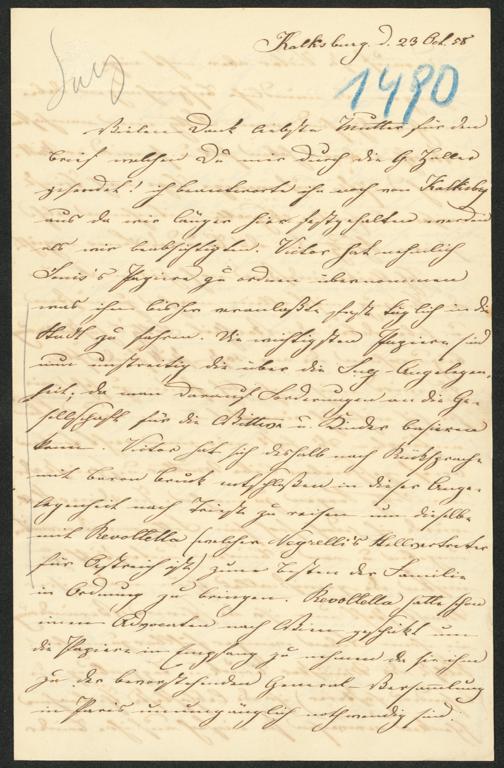 Suez
Kalksburg d. 23 Oct. 58
1490
Vielen Dank liebste Mutter für den
Brief welchen Du mir durch die G. Haller
gesendet! ich beantworte ihn noch von Kalksbg
aus da wir länger hier festgehalten werden
als wir beabsichtigten. Victor hat nehmlich
Louis's Papiere zu ordnen übernommen
was ihn bisher veranlaßte fast täglich in die
Stadt zu fahren. Die wichtigsten Papiere sind
nun unstreitig die über die Suez-Angelegen-
heit, da man darauf Forderungen an die Ge-
sellschaft für die Wittwe u. Kinder basieren
kann. Victor hat sich deshalb nach Rücksprache
mit Baron Bruck entschloßen in dieser Ange-
legenheit nach Triest zu reisen um dieselbe
mit Revolltella (welcher Negrelli's Stellvertreter
für Oestreich ist) zum Besten der Familie
in Ordnung zu bringen. Revolltella hatte schon
einen Advocaten nach Wien geschickt um
die Papiere in Empfang zu nehmen da sie ihm
zu der bevorstehenden General-Versamlung
in Paris unumgänglich nothwendig sind.